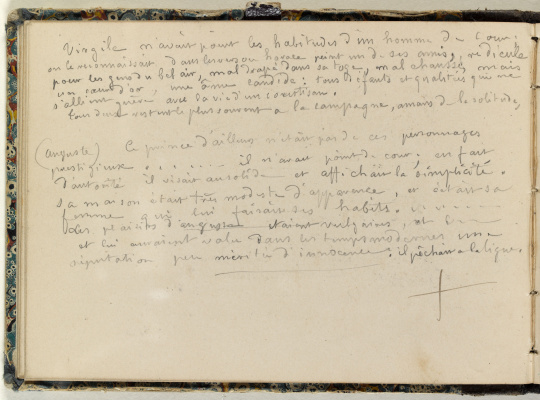 Virgile n'avait point les habitudes d'un homme de cour;
on le reconnaissait dans les vers où horace peint un de ses amis, ridicule
pour les gens du bel air, mal drapé dans sa toge, mal chaussé, mais
un cœur d'or, une âme candide: tous défauts et qualités qui ne
s'allient guère avec la vie d'un courtisan.
Tous deux vont le plus souvent à la campagne, amans de la solitude,
(auguste) Ce prince d'ailleurs n'était pas de ces personnages
prestigieux . . . . . . il n'avait point de cour, en fait
d'autorité il visait au solide et affichait la simplicité.
Sa maison était très modeste d'apparence, et c'était sa
femme qui lui faisait des habits.
des plaisirs d'auguste étaient vulgaires, et
et lui auraient valu dans les temps modernes une
réputation peu méritée d'innocence; il pêchait à la ligne.